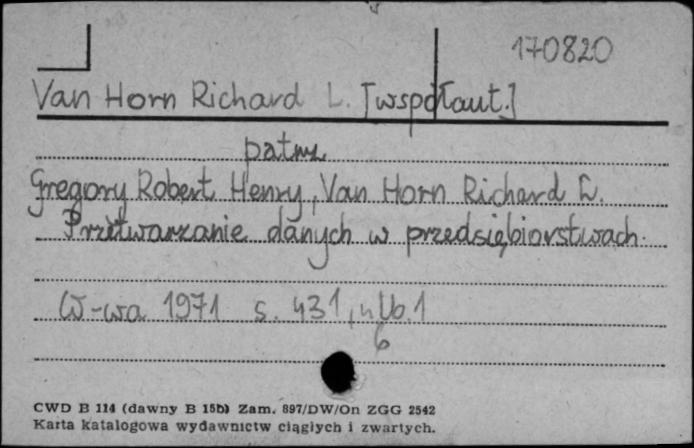 170820
Van Horn Richard L. [współaut.]
patrz
Gregory Robert Henry, Van Horn Richard L.
Przetwarzanie danych w przedsiębiorstwach.
W-wa 1971 s. 431, nlb. 1
6
CWD B 114 (dawny B 15b) Zam. 897/DW/On ZGG 2542
Karta katalogowa wydawnictw ciągłych i zwartych.